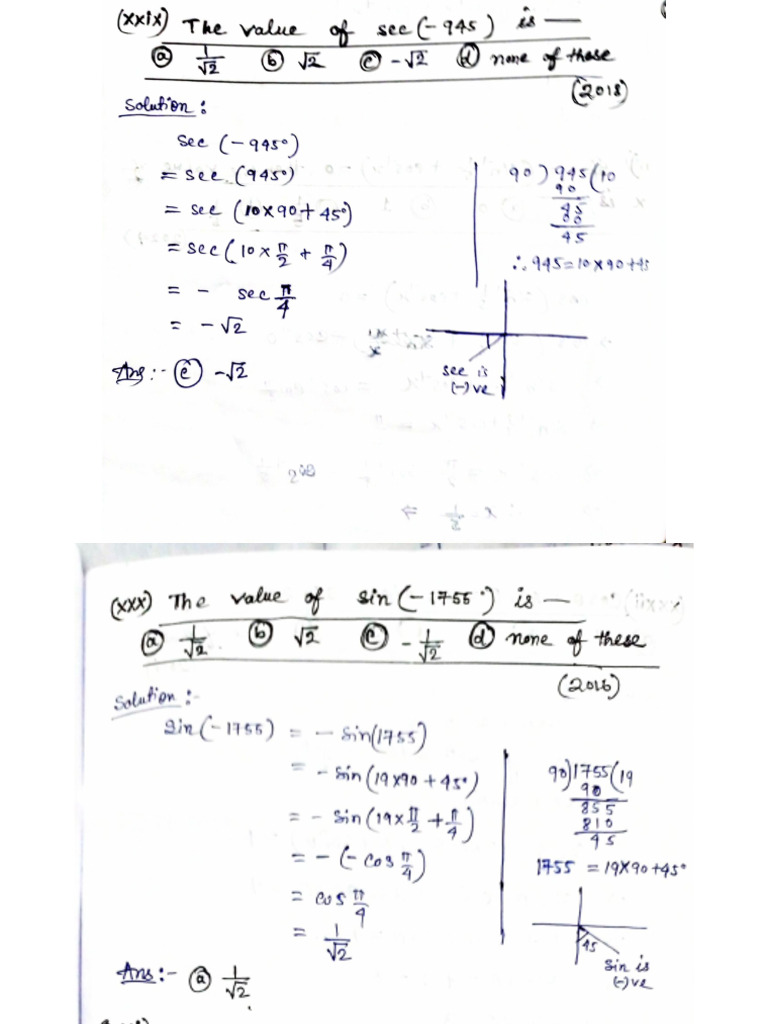 (xxix) The value of sec(-945) is —
ⓐ 1/√2 ⓑ √2 ⓒ -√2 ⓓ none of these
(2018)
Solution :
sec (-945°)
= sec (945°)
= sec (10×90+45°)
= sec (10×π/2 + π/4)
= - sec π/4
= -√2
Ans :- ⓒ -√2
90 ) 945 ( 10
90
45
00
45
∴ 945 = 10×90+45
sec is
(-)ve
(xxx) The value of sin(-1755°) is —
ⓐ 1/√2 ⓑ √2 ⓒ -1/√2 ⓓ none of these
(2016)
Solution :-
Sin(-1755) = - Sin(1755)
= - Sin (19×90+45°)
= - Sin (19×π/2 + π/4)
= - (- cos π/4)
= cos π/4
= 1/√2
Ans :- ⓐ 1/√2
90)1755(19
90
855
810
45
1755 = 19×90+45°
45
Sin is
(-)ve